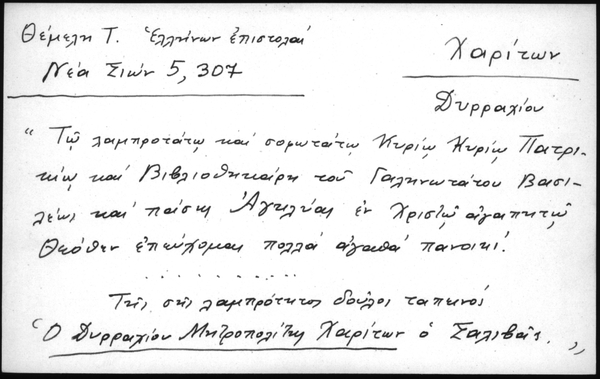 Θέμελη Τ. Ἑλλήνων ἐπιστολαί
Νέα Σιών 5, 307
Χαρίτων
Δυρραχίου
“ Τῷ λαμπροτάτῳ καί σοφωτάτῳ Κυρίῳ Κυρίῳ Πατρι-
κίῳ καί Βιβλιοθηκαρίῃ τοῦ Γαληνωτάτου Βασι-
λέως καί πάσης Ἀγκλίας ἐν Χριστῷ ἀγαπητῷ
Θεόθεν ἐπεύχομαι πολλά ἀγαθά πανοικί.
. . . . . . . . . . .
Τῆς σῆς λαμπρότητος δοῦλοι ταπεινοί
Ὁ Δυρραχίου Μητροπολίτης Χαρίτων ὁ Σαλιβᾶς. ”